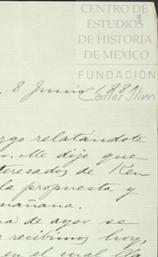 CENTRO DE
ESTUDIOS
DE HISTORIA
DE MEXICO
FUNDACIÓN
Carlos Slim
8 Junio
relatándote
Me dijo que
teresados de Ken
la propuesta y
mañana.
de ayer se
recibimos hoy,
en el cual